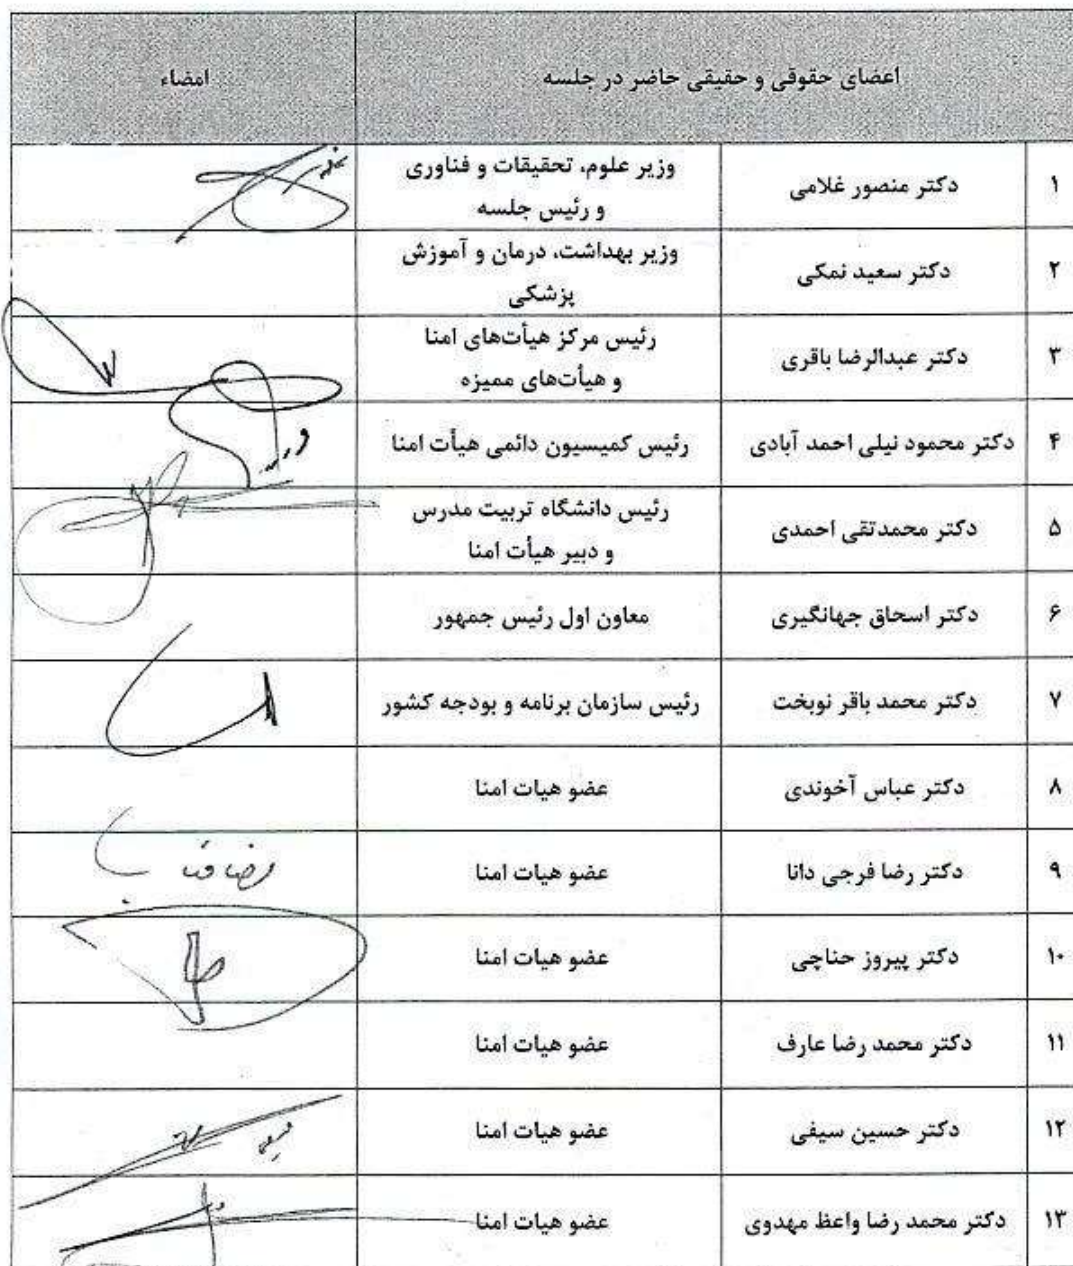 اعضای حقوقی و حقیقی حاضر در جلسه	امضاء
۱	دکتر منصور غلامی	وزیر علوم، تحقیقات و فناوری
و رئیس جلسه
۲	دکتر سعید نمکی	وزیر بهداشت، درمان و آموزش
پزشکی
۳	دکتر عبدالرضا باقری	رئیس مرکز هیأت‌های امنا
و هیأت‌های ممیزه
۴	دکتر محمود نیلی احمد آبادی	رئیس کمیسیون دائمی هیأت امنا
۵	دکتر محمدتقی احمدی	رئیس دانشگاه تربیت مدرس
و دبیر هیأت امنا
۶	دکتر اسحاق جهانگیری	معاون اول رئیس جمهور
۷	دکتر محمد باقر نوبخت	رئیس سازمان برنامه و بودجه کشور
۸	دکتر عباس آخوندی	عضو هیات امنا
۹	دکتر رضا فرجی دانا	عضو هیات امنا
۱۰	دکتر پیروز حناچی	عضو هیات امنا
۱۱	دکتر محمد رضا عارف	عضو هیات امنا
۱۲	دکتر حسین سیفی	عضو هیات امنا
۱۳	دکتر محمد رضا واعظ مهدوی	عضو هیات امنا